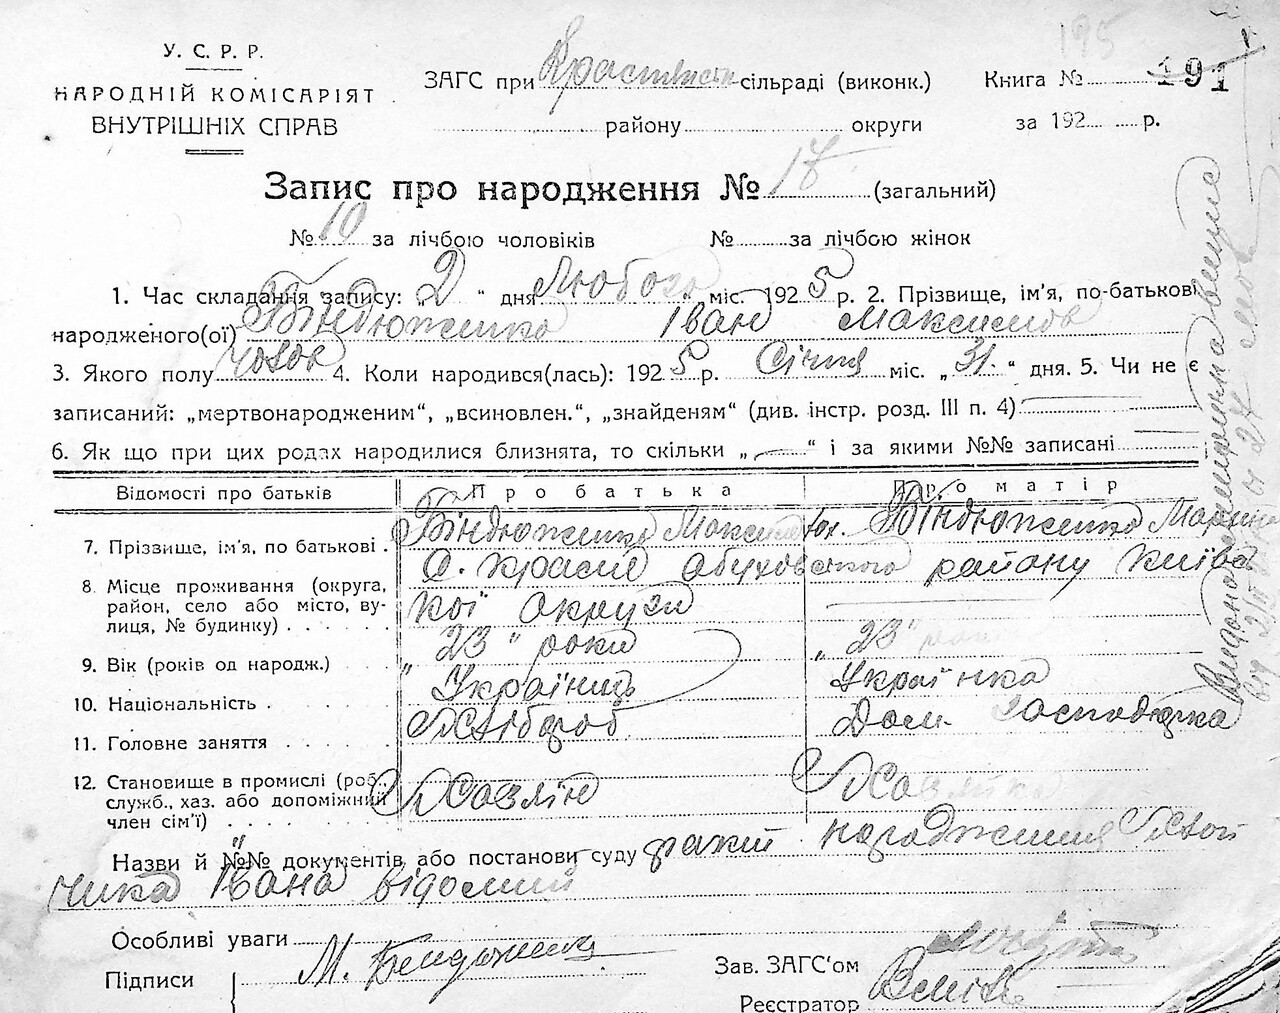 У. С. Р. Р.
НАРОДНІЙ КОМІСАРІЯТ
ВНУТРІШНІХ СПРАВ
ЗАГС при сільраді (виконк.)
району округи
Книга № 191
195
за 192 р.
Запис про народження № 17 (загальний)
№ 10 за лічбою чоловіків № за лічбою жінок
1. Час складання запису: „ 2 “ дня Лютого міс. 1925 р. 2. Прізвище, ім'я, по-батькові
народженого(ої) Біндюженко Іван Максимов
3. Якого полу чолов 4. Коли народився(лась): 1925 р. Січня міс. „31.“ дня. 5. Чи не є
записаний: „мертвонародженим“, „всиновлен.“, „знайденям“ (див. інстр. розд. III п. 4)
6. Як що при цих родах народилися близнята, то скільки „ “ і за якими №№ записані
Відомості про батьків Про батька Про матір
7. Прізвище, ім'я, по батькові . Біндюженко Максим Біндюженко
8. Місце проживання (округа, район, село або місто, вулиця, № будинку) . . . . . . с. Красне Обуховського району Київс
кої округи
9. Вік (років од народж.) . . . „ 23 “ роки „ 23 “ роки
10. Національність . . . . . . Українець Українка
11. Головне заняття . . . . . . Хлібороб Дом. господарка
12. Становище в промислі (роб., служб., хаз. або допоміжний член сім'ї) . . . . . . .
Назви й №№ документів або постанови суду факт народження
чика Івана відомий
Особливі уваги
Підписи М.
Зав. ЗАГС'ом
Реєстратор